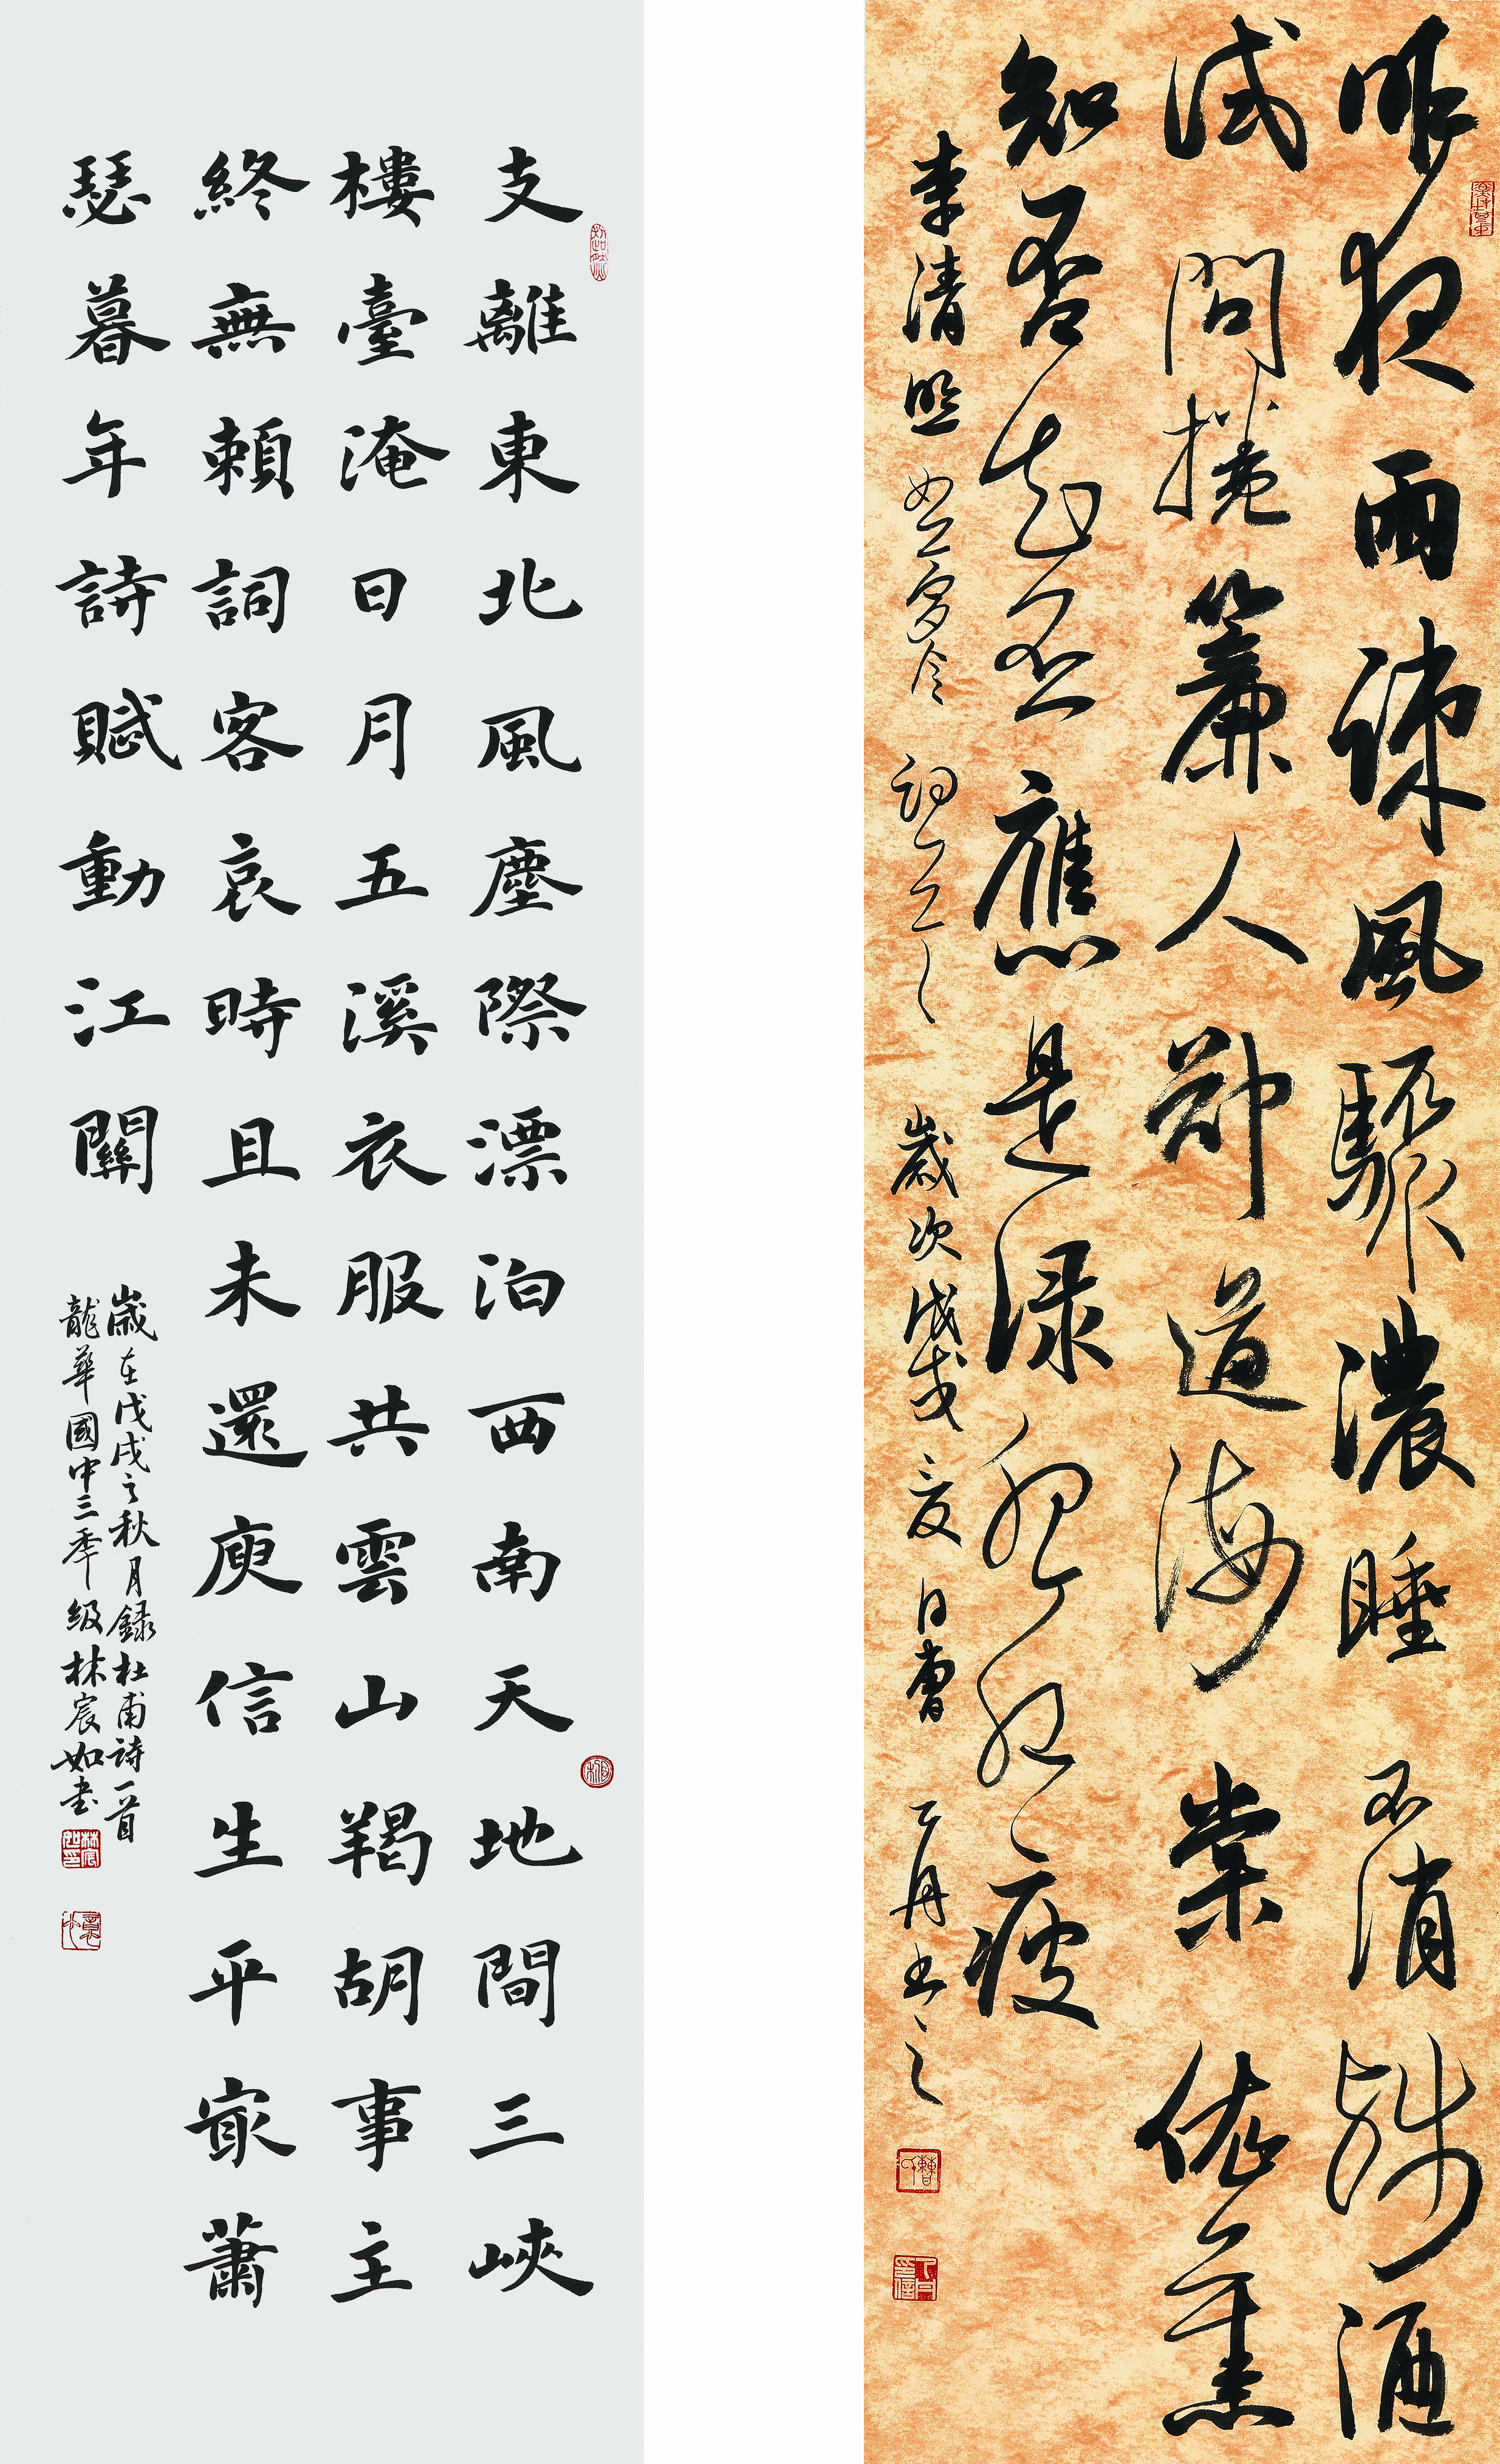 昨夜雨疎風驟濃睡不消殘酒
試問捲簾人卻道海棠依舊
知否知否應是綠肥紅瘦
李清照如夢令詞 歲次戊戌夏日曹丁月書之
支離東北風塵際漂泊西南天地間三峽
樓臺淹日月五溪衣服共雲山羯胡事主
終無賴詞客哀時且未還庾信生平㝡蕭
瑟暮年詩賦動江關
歲在戊戌之秋月録杜甫詩一首
龍華國中三年級林宸如書
林宸如印